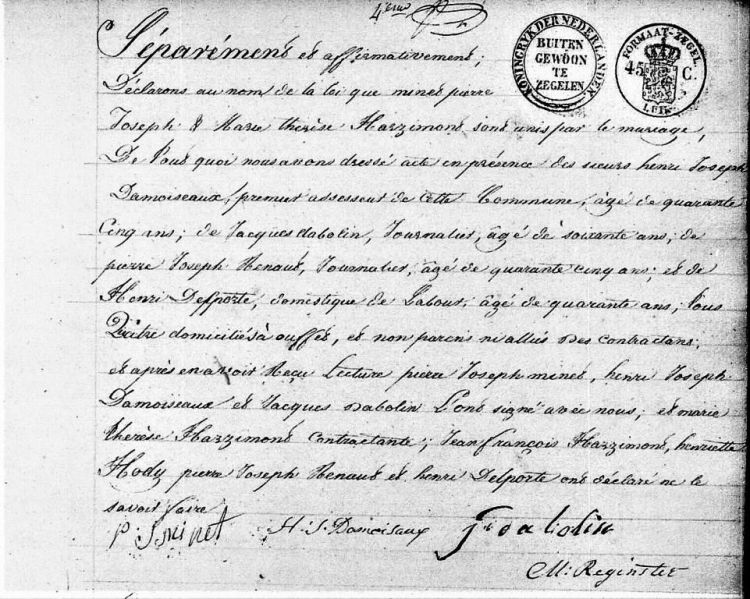 4eme
KONINGRYK DER NEDERLANDEN
BUITEN
GEWOON
TE
ZEGELEN
FORMAAT-ZEGEL
45 C.
LUIK
Séparément et affirmativement;
Déclarons au nom de la loi que minet pierre
Joseph & Marie thérèse Hazzimont sont unis par le mariage,
De tout quoi nous avons dressé acte en présence des sieurs henri Joseph
Damoiseaux, premier assesseur de cette Commune, âgé de quarante
Cinq ans; de Jacques dabolin, Journalier, âgé de soixante ans; de
pierre Joseph Renaud, Journalier, âgé de quarante cinq ans; et de
Henri Delporte, domestique de Labour, âgé de quarante ans; tous
Quatre domiciliés à ouffet, et non parens ni alliés des contractans;
et après en avoir Reçu Lecture pierre Joseph minet, henri Joseph
Damoiseaux et Jacques Dabolin L'ont signé avec nous; et marie
thérèse Hazzimont Contractante; Jean françois Hazzimont, henriette
Hody pierre Joseph Renaud et henri Delporte ont déclaré ne le
savoir faire
H. J. Damoisaux
J dabolin
M: Reginster